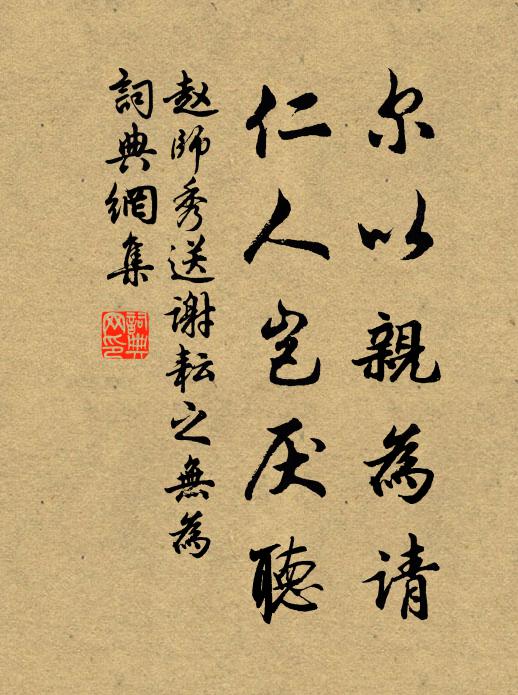 尔以親為请
仁人岂厌聴
赵師秀送谢耘之無為
詞典網集
詞典
网印